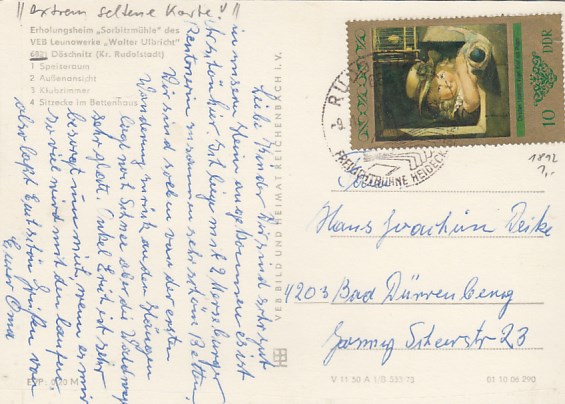 "extrem seltene Karte"!!
Erholungsheim „Sorbitzmühle" des
VEB Leunawerke „Walter Ulbricht"
6821 Döschnitz (Kr. Rudolstadt)
1 Speiseraum
2 Außenansicht
3 Klubzimmer
4 Sitzecke im Bettenhaus
Liebe Kinder Wir sind sehr gut
in unserm Heim angekommen. Es ist
sehr schön hier. Ich liege mit 2 Merseburger
Rentnerin zusammen sehr schöne Betten,
Wir sind soeben von der ersten
Wanderung zurück an den Hängen
liegt noch Schnee aber die Waldwege
sehr glatt. Onkel Erich ist sehr
besorgt um mich, wenn es mir
so viel wird mit den Laufen,
also laßt Euch schön grüßen von
Eurer Oma
EVP: 0,20 M
VEB BILD UND HEIMAT REICHENBACH I. V.
DDR
10
FREILICHTBÜHNE HEIDECK
1892
1,-
Hans Joachim Deike
4203 Bad Dürrenberg
Georg Schwarz 23
V 11 50 A 1/B 333/72
01 10 06 290